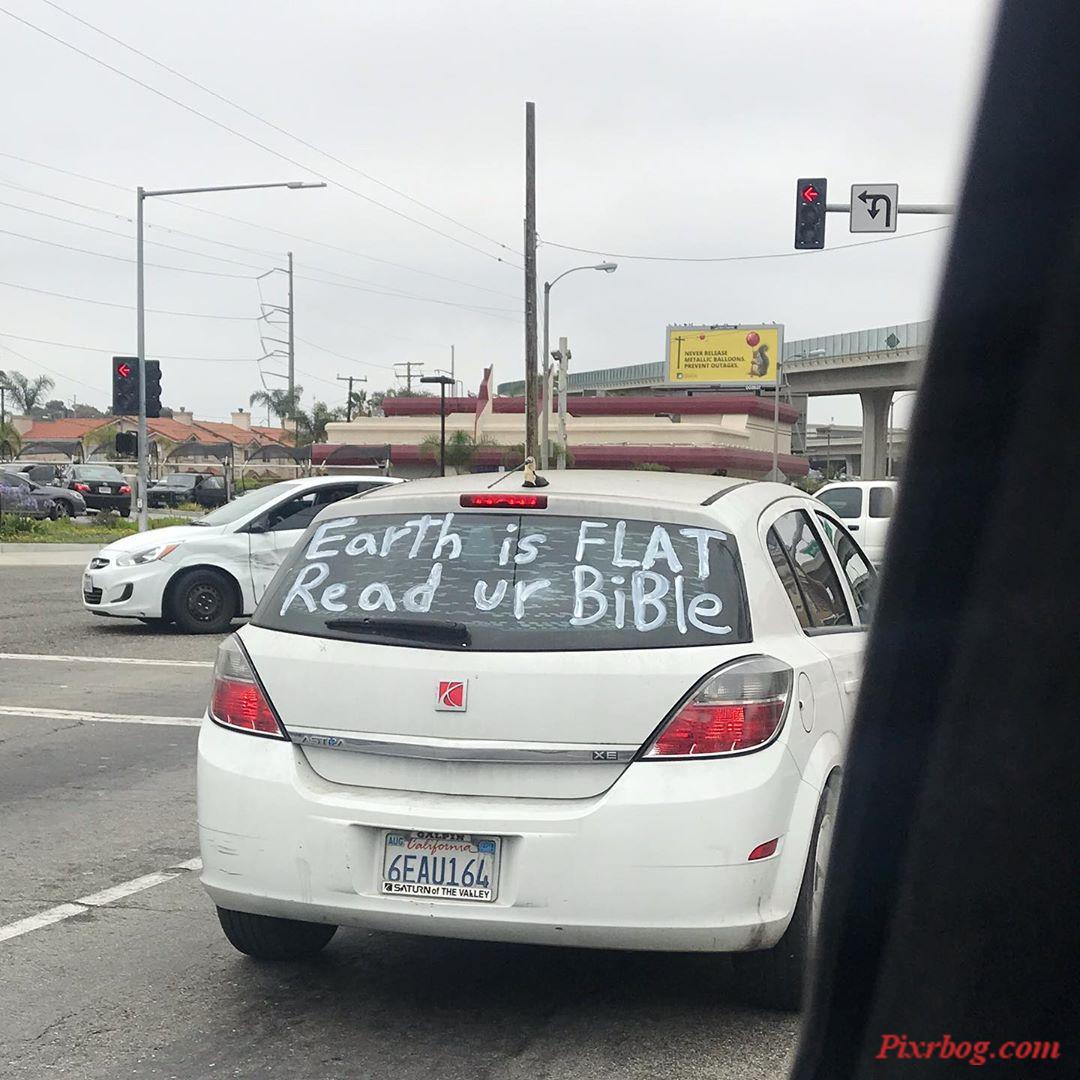 NEVER RELEASE
METALLIC BALLOONS.
PREVENT OUTAGES.
Earth is FLAT
Read ur BiBle
ASTRA
XE
GALPIN
AUG
California
6EAU164
SATURN of THE VALLEY
Pixrbog.com